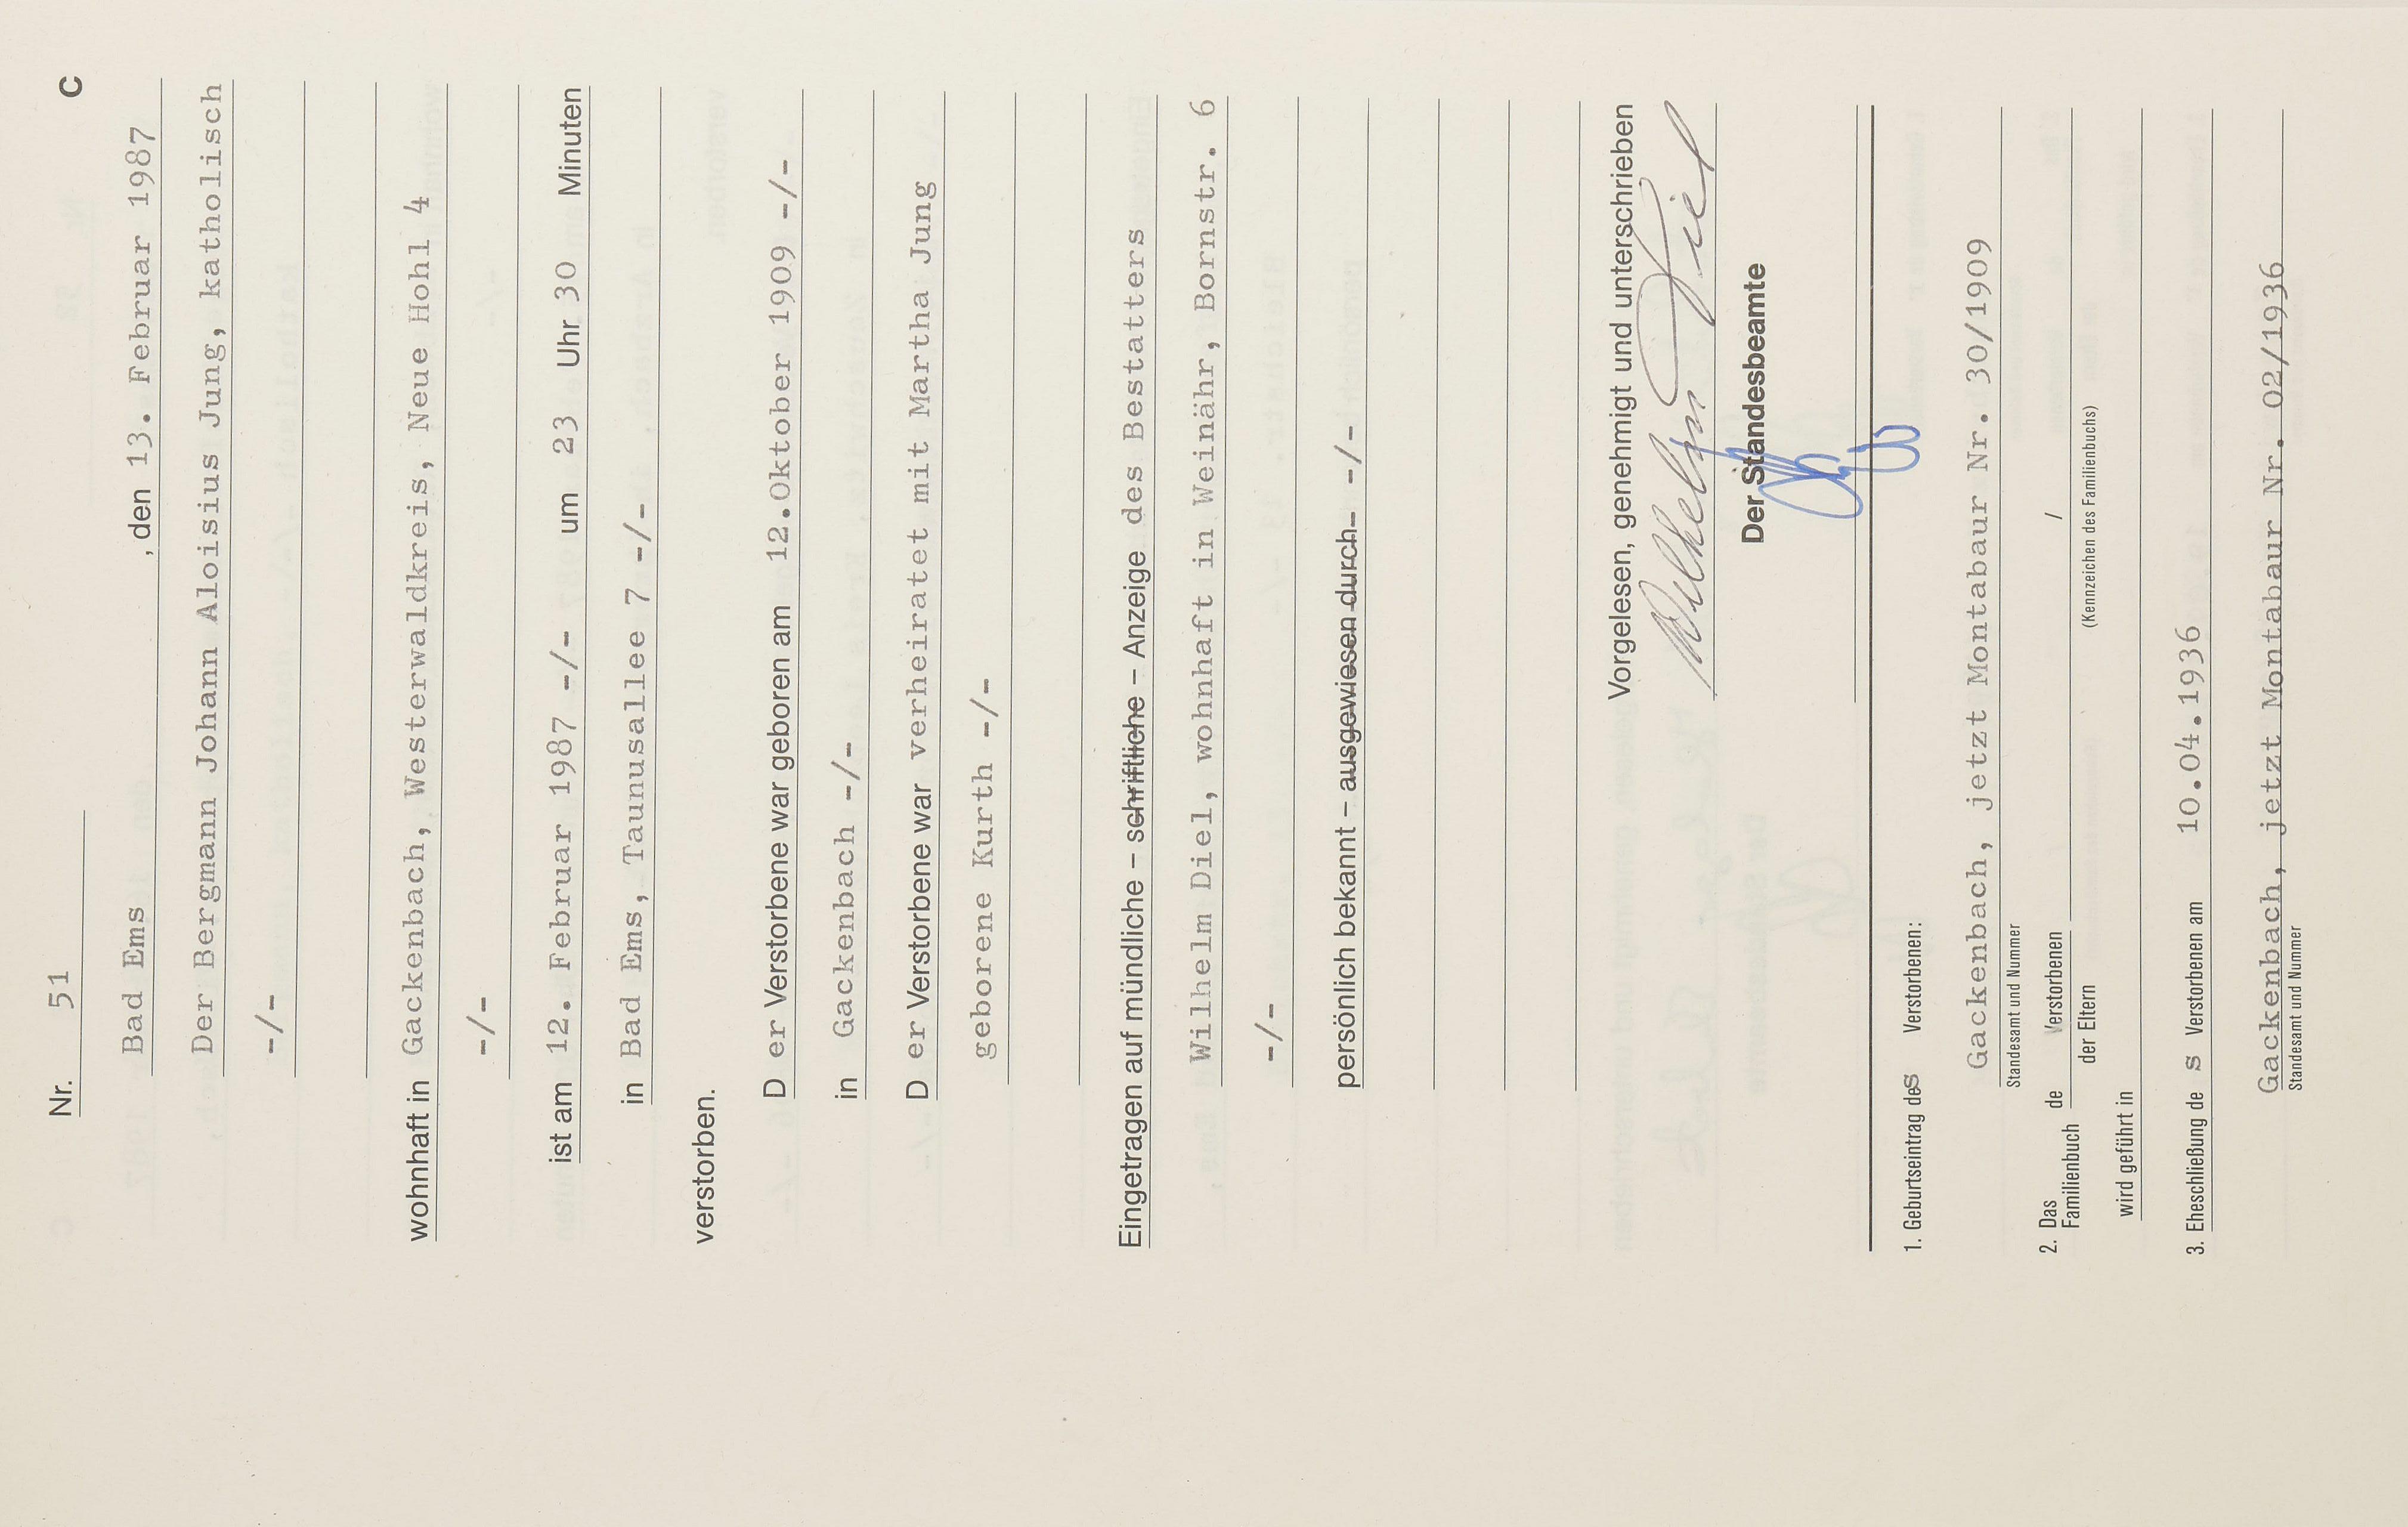 Nr. 51 C
Bad Ems , den 13. Februar 1987
Der Bergmann Johann Aloisius Jung, katholisch
-/-
wohnhaft in Gackenbach, Westerwaldkreis, Neue Hohl 4
-/-
ist am 12. Februar 1987 -/- um 23 Uhr 30 Minuten
in Bad Ems, Taunusallee 7 -/-
verstorben.
D er Verstorbene war geboren am 12.Oktober 1909 -/-
in Gackenbach -/-
D er Verstorbene war verheiratet mit Martha Jung
geborene Kurth -/-
Eingetragen auf mündliche – schriftliche – Anzeige des Bestatters
Wilhelm Diel, wohnhaft in Weinähr, Bornstr. 6
-/-
persönlich bekannt – ausgewiesen durch -/-
Vorgelesen, genehmigt und unterschrieben
Wilhelm Diel
Der Standesbeamte
1. Geburtseintrag des Verstorbenen:
Gackenbach, jetzt Montabaur Nr. 30/1909
Standesamt und Nummer
2. Das Familienbuch de Verstorbenen /
der Eltern (Kennzeichen des Familienbuchs)
wird geführt in
3. Eheschließung de s Verstorbenen am 10.04.1936
Gackenbach, jetzt Montabaur Nr. 02/1936
Standesamt und Nummer